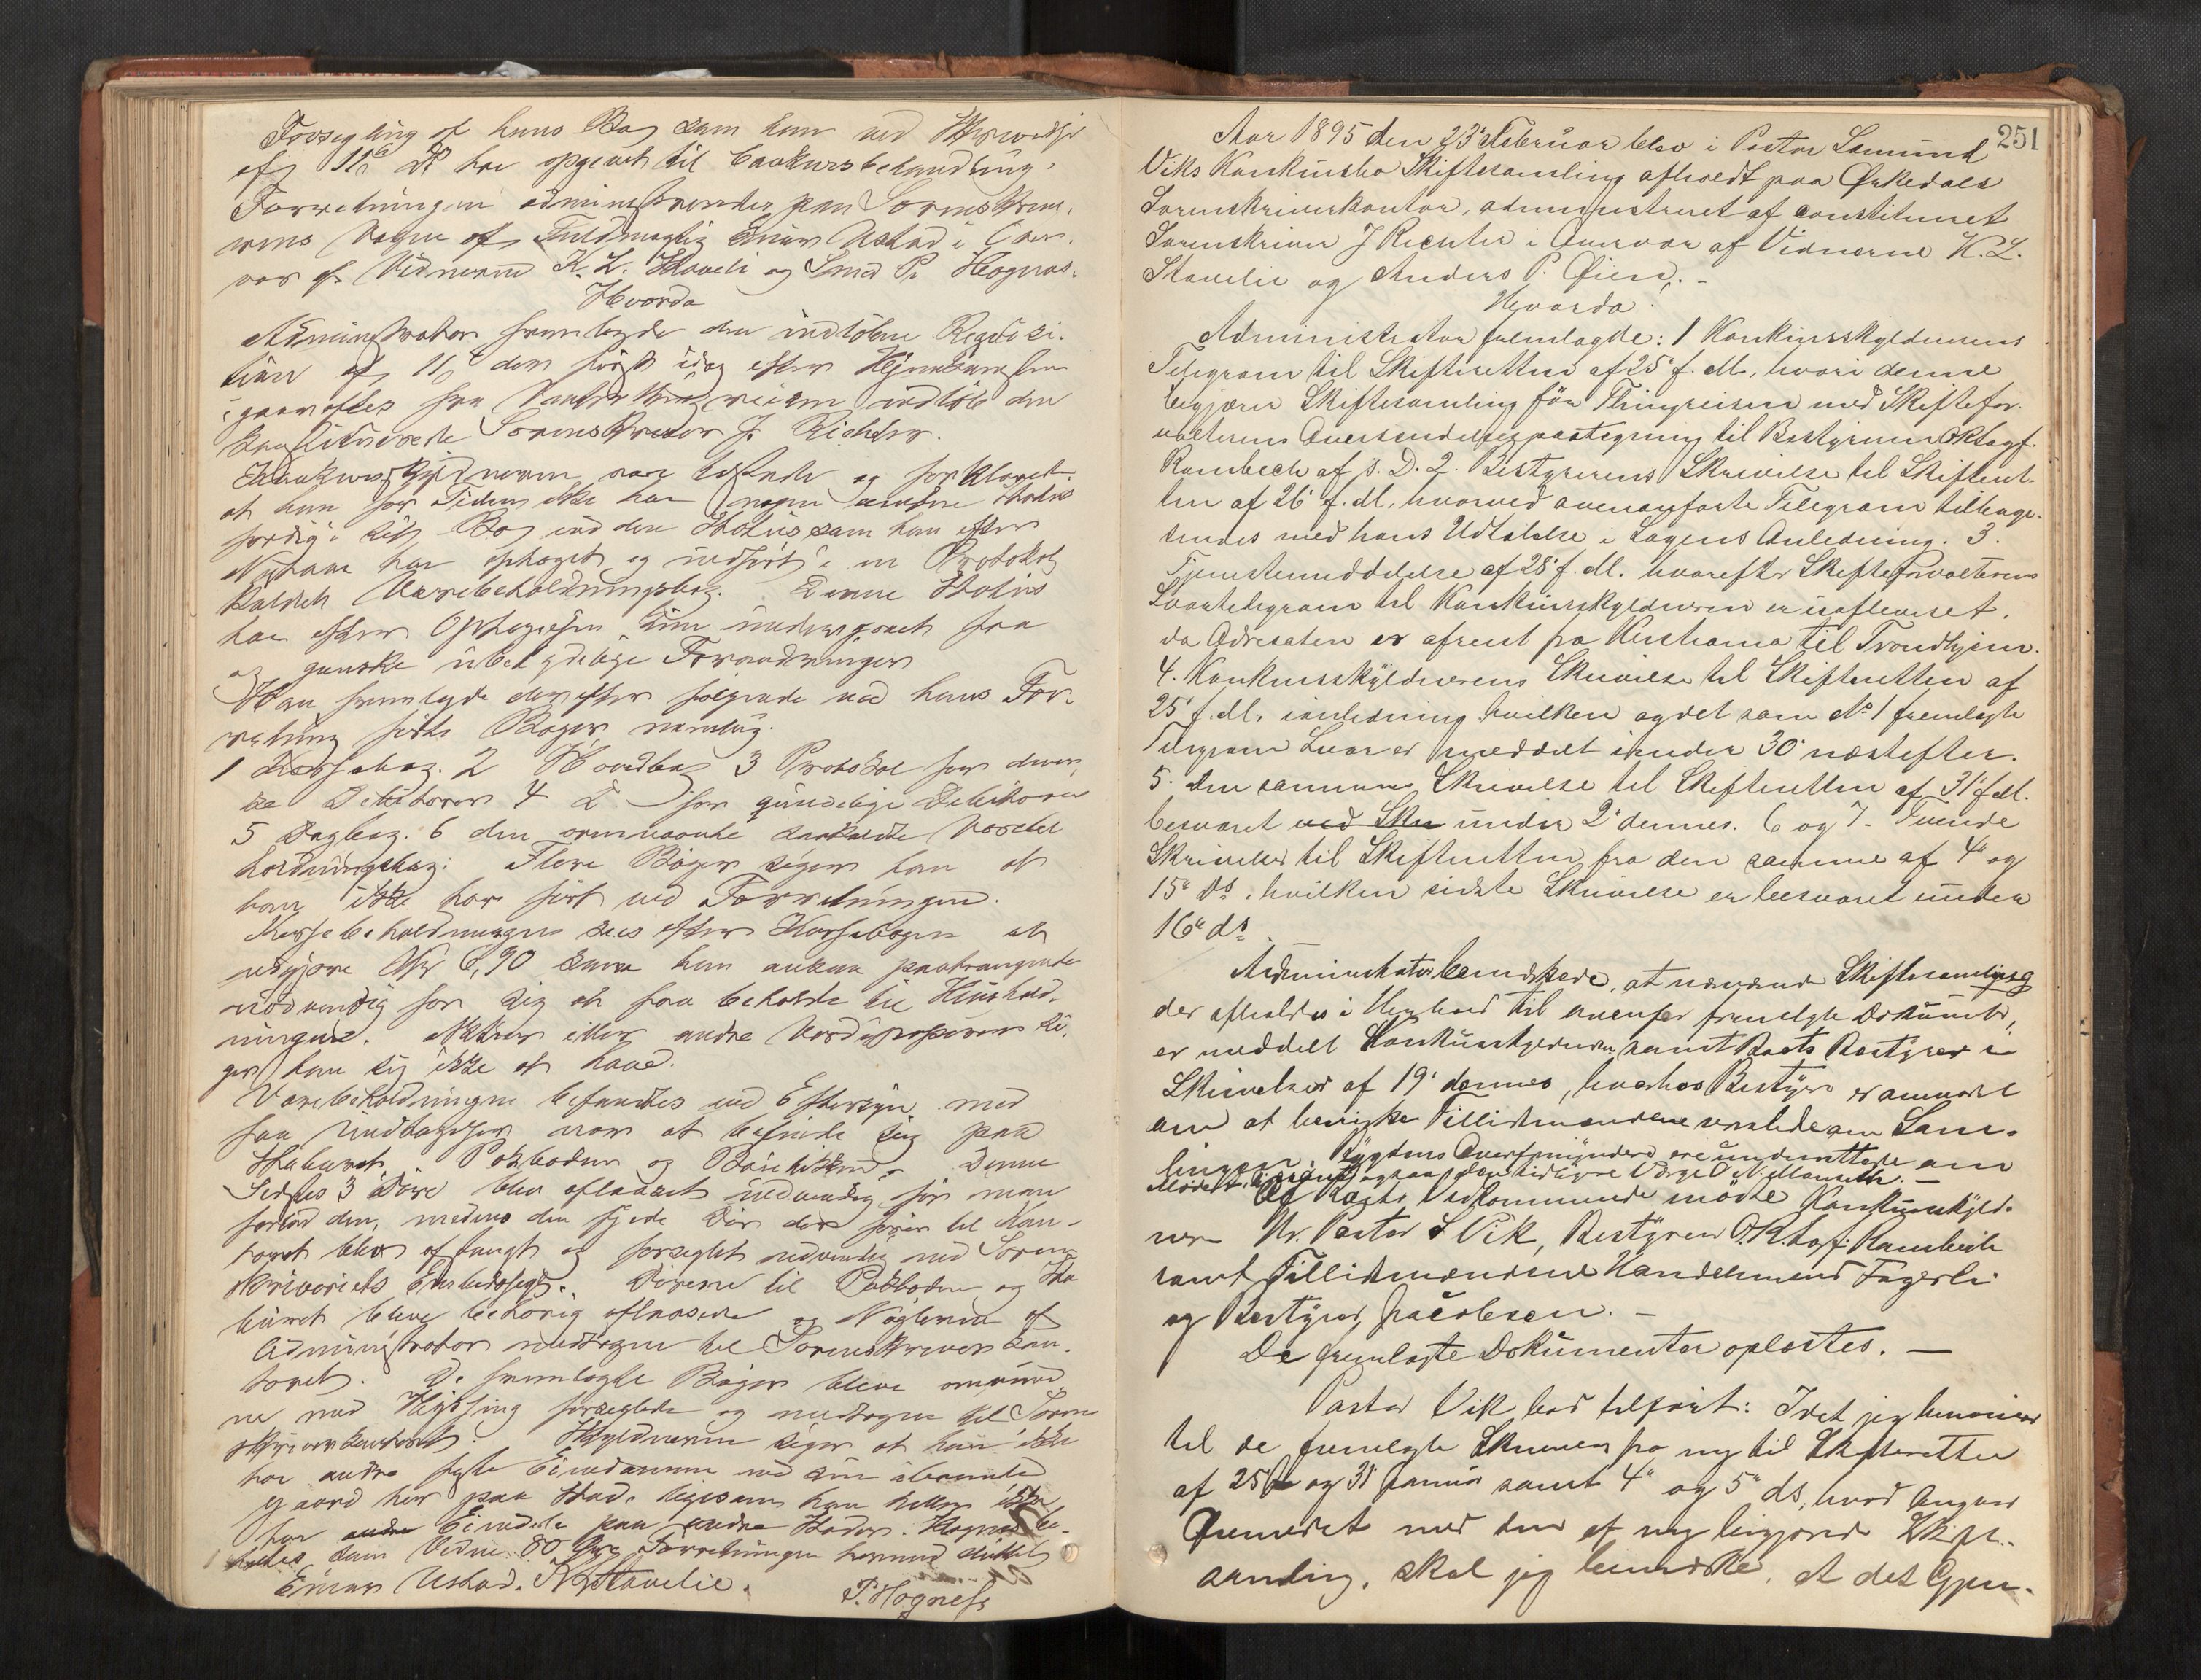 Forsegling af hans Bo, som han ved Skrivelse
af 11te ds har opgivet til Konkursbehandling.
Forretningen administreredes paa Sorenskrive-
rens Vegne af Fuldmægtig Einar Ustad i Over-
vær af Vidnerne K. L. Staveli og Smed P. Hognæs.
Hvorda
Administrator fremlagde den indløbne Requisi-
tion af 11 der først idag efter Hjemkomsten
igaaraftes fra indløb den
konstituerede Sorenskriver J. Richter.
Konkursskyldneren var tilstede og forklared
at han for Tiden ikke har nogen anden Status
færdig i sit Bo end den Status som han efter
Nytaar har optaget og indført i en Protokol
kaldet Varebeholdningsbog. Denne Status
har efter Optagelsen kun undergaaet faa
og ganske ubetydelige Forandringer
Han fremlagde derefter følgende ved hans For-
retning førte Bøger nemlig.
1 Kassabog. 2 Hovedbog 3 Protokol for diver-
se Debitorer 4 D for Debitorer
5 Dagbog. 6 den ovennævnte saakaldte Varebe-
holdningsbog. Flere Bøger siger han at
han ikke har ført ved Forretningen.
Kassebeholdningen sees efter Kassebogen at
udgjøre Kr 6,90 som han ansaa paatrængende
nødvendig for sig at faa beholde til Hushold-
ningen. Aktier eller andre Værdipapirer si-
ger han sig ikke at have.
Varebeholdningen befandtes ved Eftersyn med
faa Undtagelser være at befinde sig paa
Stabaret, Pakboden og Butikken. Denne
Sidstes 3 Døre blev aflaaset indvendig før man
forlod den, medens den fjerde Dør der fører til Kon-
toret blev aflaaset og forseglet udvendig med Soren-
skriveriets Embedssegl. Dørene til Pakboden og Sta-
buret bleve behørig aflaasede og Nøglerne af
Administrator medtagne til Sorenskriverkon-
toret. De fremlagte Bøger bleve ombund-
ne med Hyssing forseglede og medtagne til Soren
skriverkontoret. Skyldneren siger at han ikke
har andre faste Eiendomme end sin ubenyttede
Gaard her paa Stad. ligesom han heller ikke
har Eiendele paa andre Steder. Hognæs be-
taltes som Vidne 80 Øre Forretningen hermed sluttet
Einar Ustad. K. L. Stavelie.
P. Hognæs
251
Aar 1895 den 23' Februar blev i Pastor Samund
Viks Konkursbo Skiftesamling afholdt paa Ørkedals
Sorenskriverkontor, administreret af constitueret
Sorenskriver J Richter i Overvær af Vidnerne K. L.
Stavelie og Anders P. Øien. -
Hvorda:
Administrator fremlagde: 1 Konkursskyldnerens
Telegram til Skifteretten af 25' f. M., hvori denne
begjærer Skiftesamling før Thingreisen med Skiftefor-
valterens Oversendelsespaategning til Bestyreren O Khagf.
Rambech af s. D. 2. Bestyrerens Skrivelse til Skifteret-
ten af 26' f. M., hvorved ovenanførte Telegram tilbage-
sendes med hans Udtalelse i Sagens Anledning. 3.
Tjenstemeddelelse af 28' f. M. hvorefter Skifteforvalterens
Svartelegram til Konkursskyldneren er uafleveret,
da Adresaten er afreist fra Kristiania til Trondhjem.
4. Konkursskyldnerens Skrivelse til Skifteretten af
25' f. M. i anledning hvilken og det som No 1 fremlagte
Telegram Svar er meddelt under 30' næstefter.
5. Den sammes Skrivelse til Skifteretten af 31' f. M.
besvaret ved Skr under 2' dennes. 6 og 7. Tvende
Skrivelser til Skifteretten fra den samme af 4' og
15' ds. hvilken sidste Skrivelse er besvaret under
16' ds
Administrator bemærkede, at nærværende Skiftesamling
der afholdes i Henhold til ovenfor fremlagte Dokumenter,
er meddelt Konkursskyldneren, samt Boets Bestyrer i
Skrivelser af 19' dennes, hvorhos Bestyrer er anmodet
om at beskikke Tillidsmændene varslede om Sam-
lingen. Bygdens Overformyndere ere underrettede om
Mødet ligesaa den tidligere Værge O. N. Moumeth. -
Af Boets Vedkommende mødte Konkursskyld-
neren Hr. Pastor S Vik, Bestyreren O. Khagf. Rambech
samt Tillidsmændene Handelsmand Fagerli
og Bestyrer Jacobsen. -
De fremlagte Dokumenter oplæstes. -
Pastor Vik bad tilført: Idet jeg henviser
til de fremlagte Skrivelser fra mig til Skifteretten
af 25de og 31 Januar samt 4' og 5' ds, hvad angaar
Øiemedet med den af mig begjærede Skifte-
samling, skal jeg bemærke, at det Gjen-